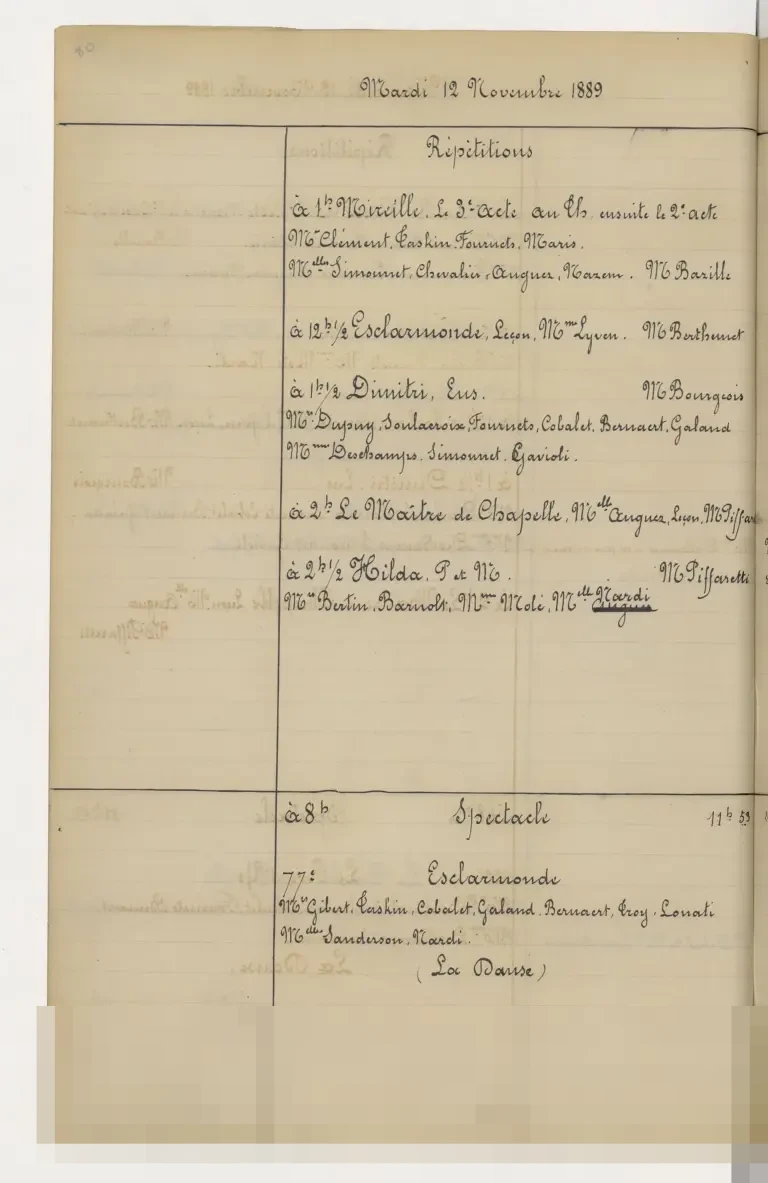 80
Mardi 12 Novembre 1889
Répétitions
à 1h Mireille. Le 3e acte au Th. ensuite le 2e acte
Mrs Clément, Taskin, Fournets, Maris.
Melles Simonnet, Chevalier, Auguez, Nazem. M Bazille
à 12h 1/2 Esclarmonde, Leçon, Mme Lyven. M Berthemet
à 1h 1/2 Dimitri, Ens. M Bourgeois
Mrs Dupuy, Soulacroix, Fournets, Cobalet, Bernaert, Galand
Mmes Deschamps. Simonnet. Gavioli.
à 2h Le Maître de Chapelle, Melle Auguez, Leçon, M
à 2h 1/2 Hilda, P et M. M Piffaretti
Mrs Bertin, Barnolt, Mme Molé, Melle Nardi
à 8h Spectacle 11h 53
77e Esclarmonde
Mrs Gibert, Taskin, Cobalet, Galand. Bernaert, Troy. Lonati
Melles Sanderson, Nardi.
(La Danse)